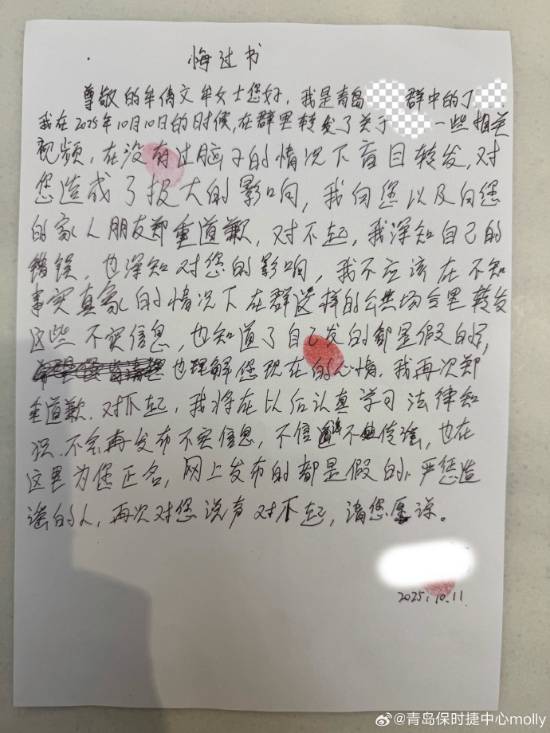 悔过书
尊敬的牟倩文牟女士您好，我是青岛 群中的丁
我在2025年10月10日的时候，在群里转发了关于 一些相关
视频，在没有过脑子的情况下盲目转发，对
您造成了极大的影响，我向您以及向您
的家人朋友郑重道歉，对不起，我深知自己的
错误，也深知对您的影响，我不应该在不知
事实真家的情况下在群这样的公共场合里转发
这些不实信息，也知道了自己发的都是假的，
也理解您现在的心情，我再次郑
重道歉，对不起，我将在以后认真学习法律知
识，不会再发布不实信息，不信谣不传谣，也在
这里为您正名，网上发布的都是假的，严惩造
谣的人，再次对您说声对不起，请您原谅。
2025.10.11
@青岛保时捷中心molly